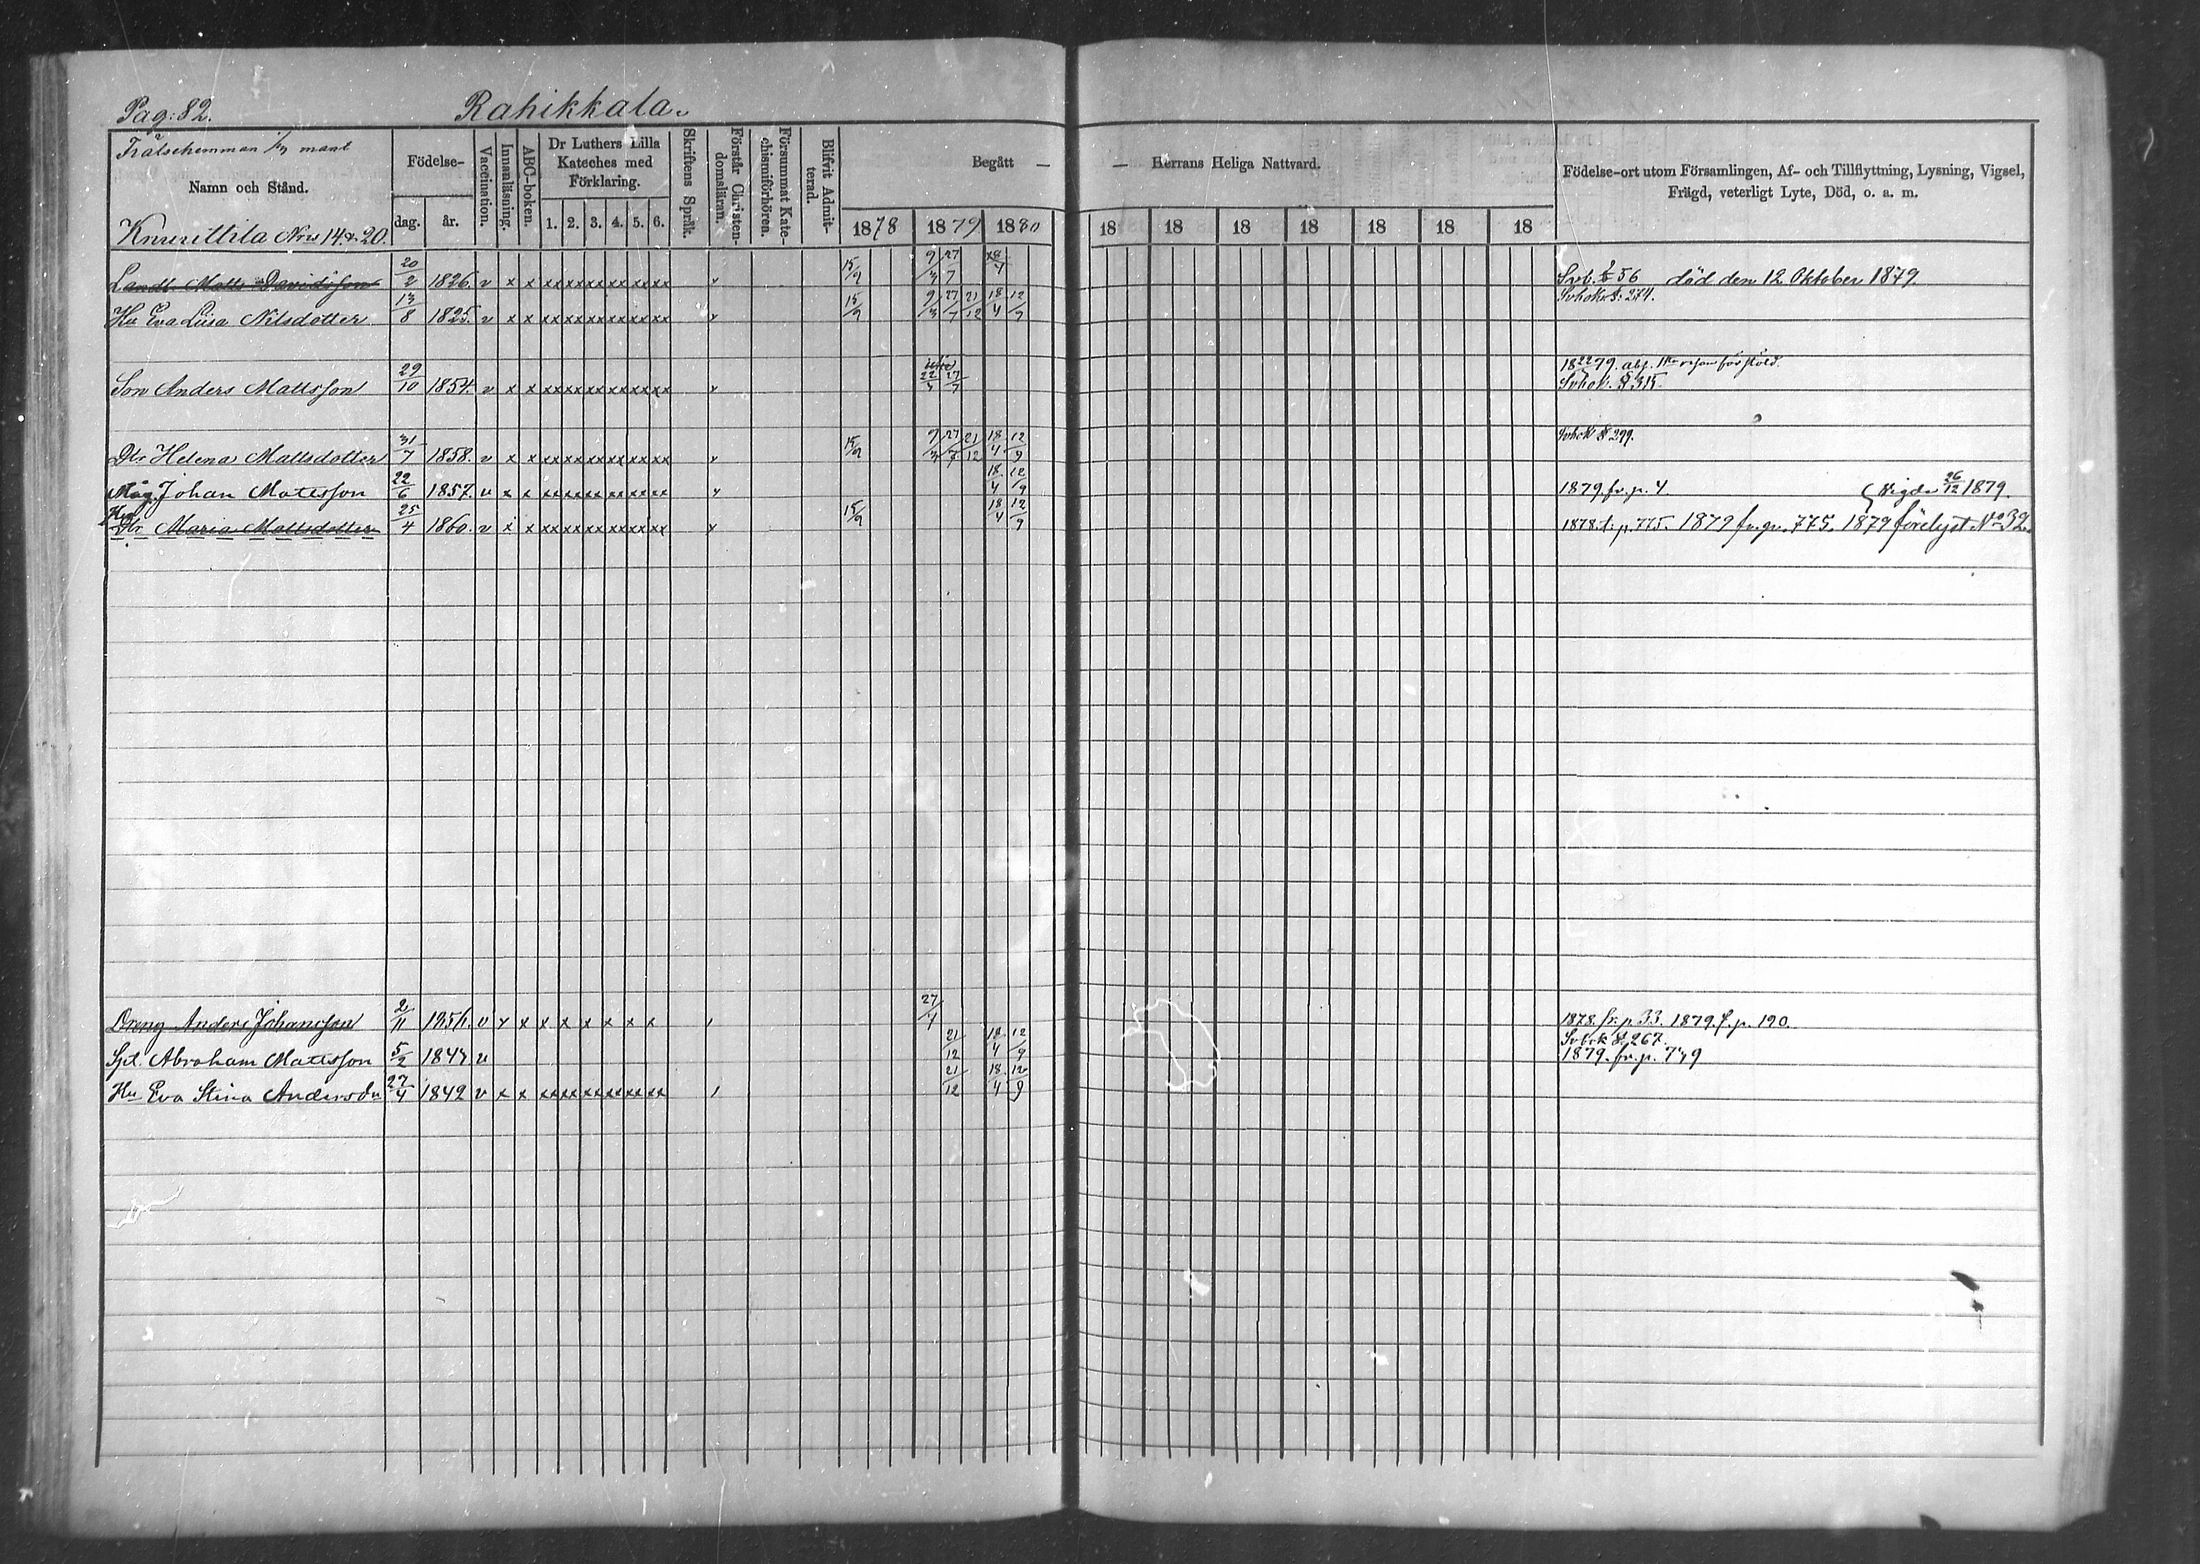 Pag: 82. Rahikkala.
Namn och Stånd.
Födelse-
dag. år.
Vaccination.
Innanläsning.
ABC-boken.
Dr Luthers Lilla
Kateches med
Förklaring.
1. 2. 3. 4. 5. 6.
Skriftens Språk.
Förstår Christen-
domsläran.
Försummat Kate-
chismiförhören.
Blifvit Admit-
terad.
Begått — — Herrans Heliga Nattvard.
1878 1879 1880 18 18 18 18 18 18 18
Födelse-ort utom Församlingen, Af- och Tillflyttning, Lysning, Vigsel,
Frägd, veterligt Lyte, Död, o. a. m.
Nris 14 & 20.
Landb. Matts Davidsson 20/2 1826. v x x xx xx xx xx xx xx 15/9 9/3 27/7 18/4 56 död den 12 Oktober 1879.
Hu Eva Lisa Nilsdotter 13/8 1825. v x x xx xx xx xx xx xx 15/9 9/3 27/7 21/12 18/4 12/9 274.
Son Anders Mattsson 29/10 1854. v x x xx xx xx xx xx xx 27/7 § 315.
Dtr Helena Mattsdotter 31/7 1858. v x x xx xx xx xx xx xx 15/9 9/3 27/7 21/12 18/4 12/9 § 299.
Måg Johan Matisson 22/6 1857. v x x xx xx xx xx xx xx 18/4 12/9 1879. fr. p. 4. Vigda 26/12 1879.
Hu
Dtr Maria Mattsdotter 25/4 1860. v x x xx xx xx xx xx xx 15/9 18/4 12/9 1878. f. p. 775. 1879 fr. p. 775. 1879 förelyst No 32.
Dreng Anders Johansson 2/11 v x x x x x x x x 27/4 1878. fr. p. 33. 1879. f. p. 190.
Spt. Abraham Matisson 5/2 1847 v 21/12 18/4 12/9 § 267.
1879. fr. p. 779
Hu Eva Stina Andersdr 27/4 1842 v x x xx xx xx xx xx xx 21/12 18/4 12/9